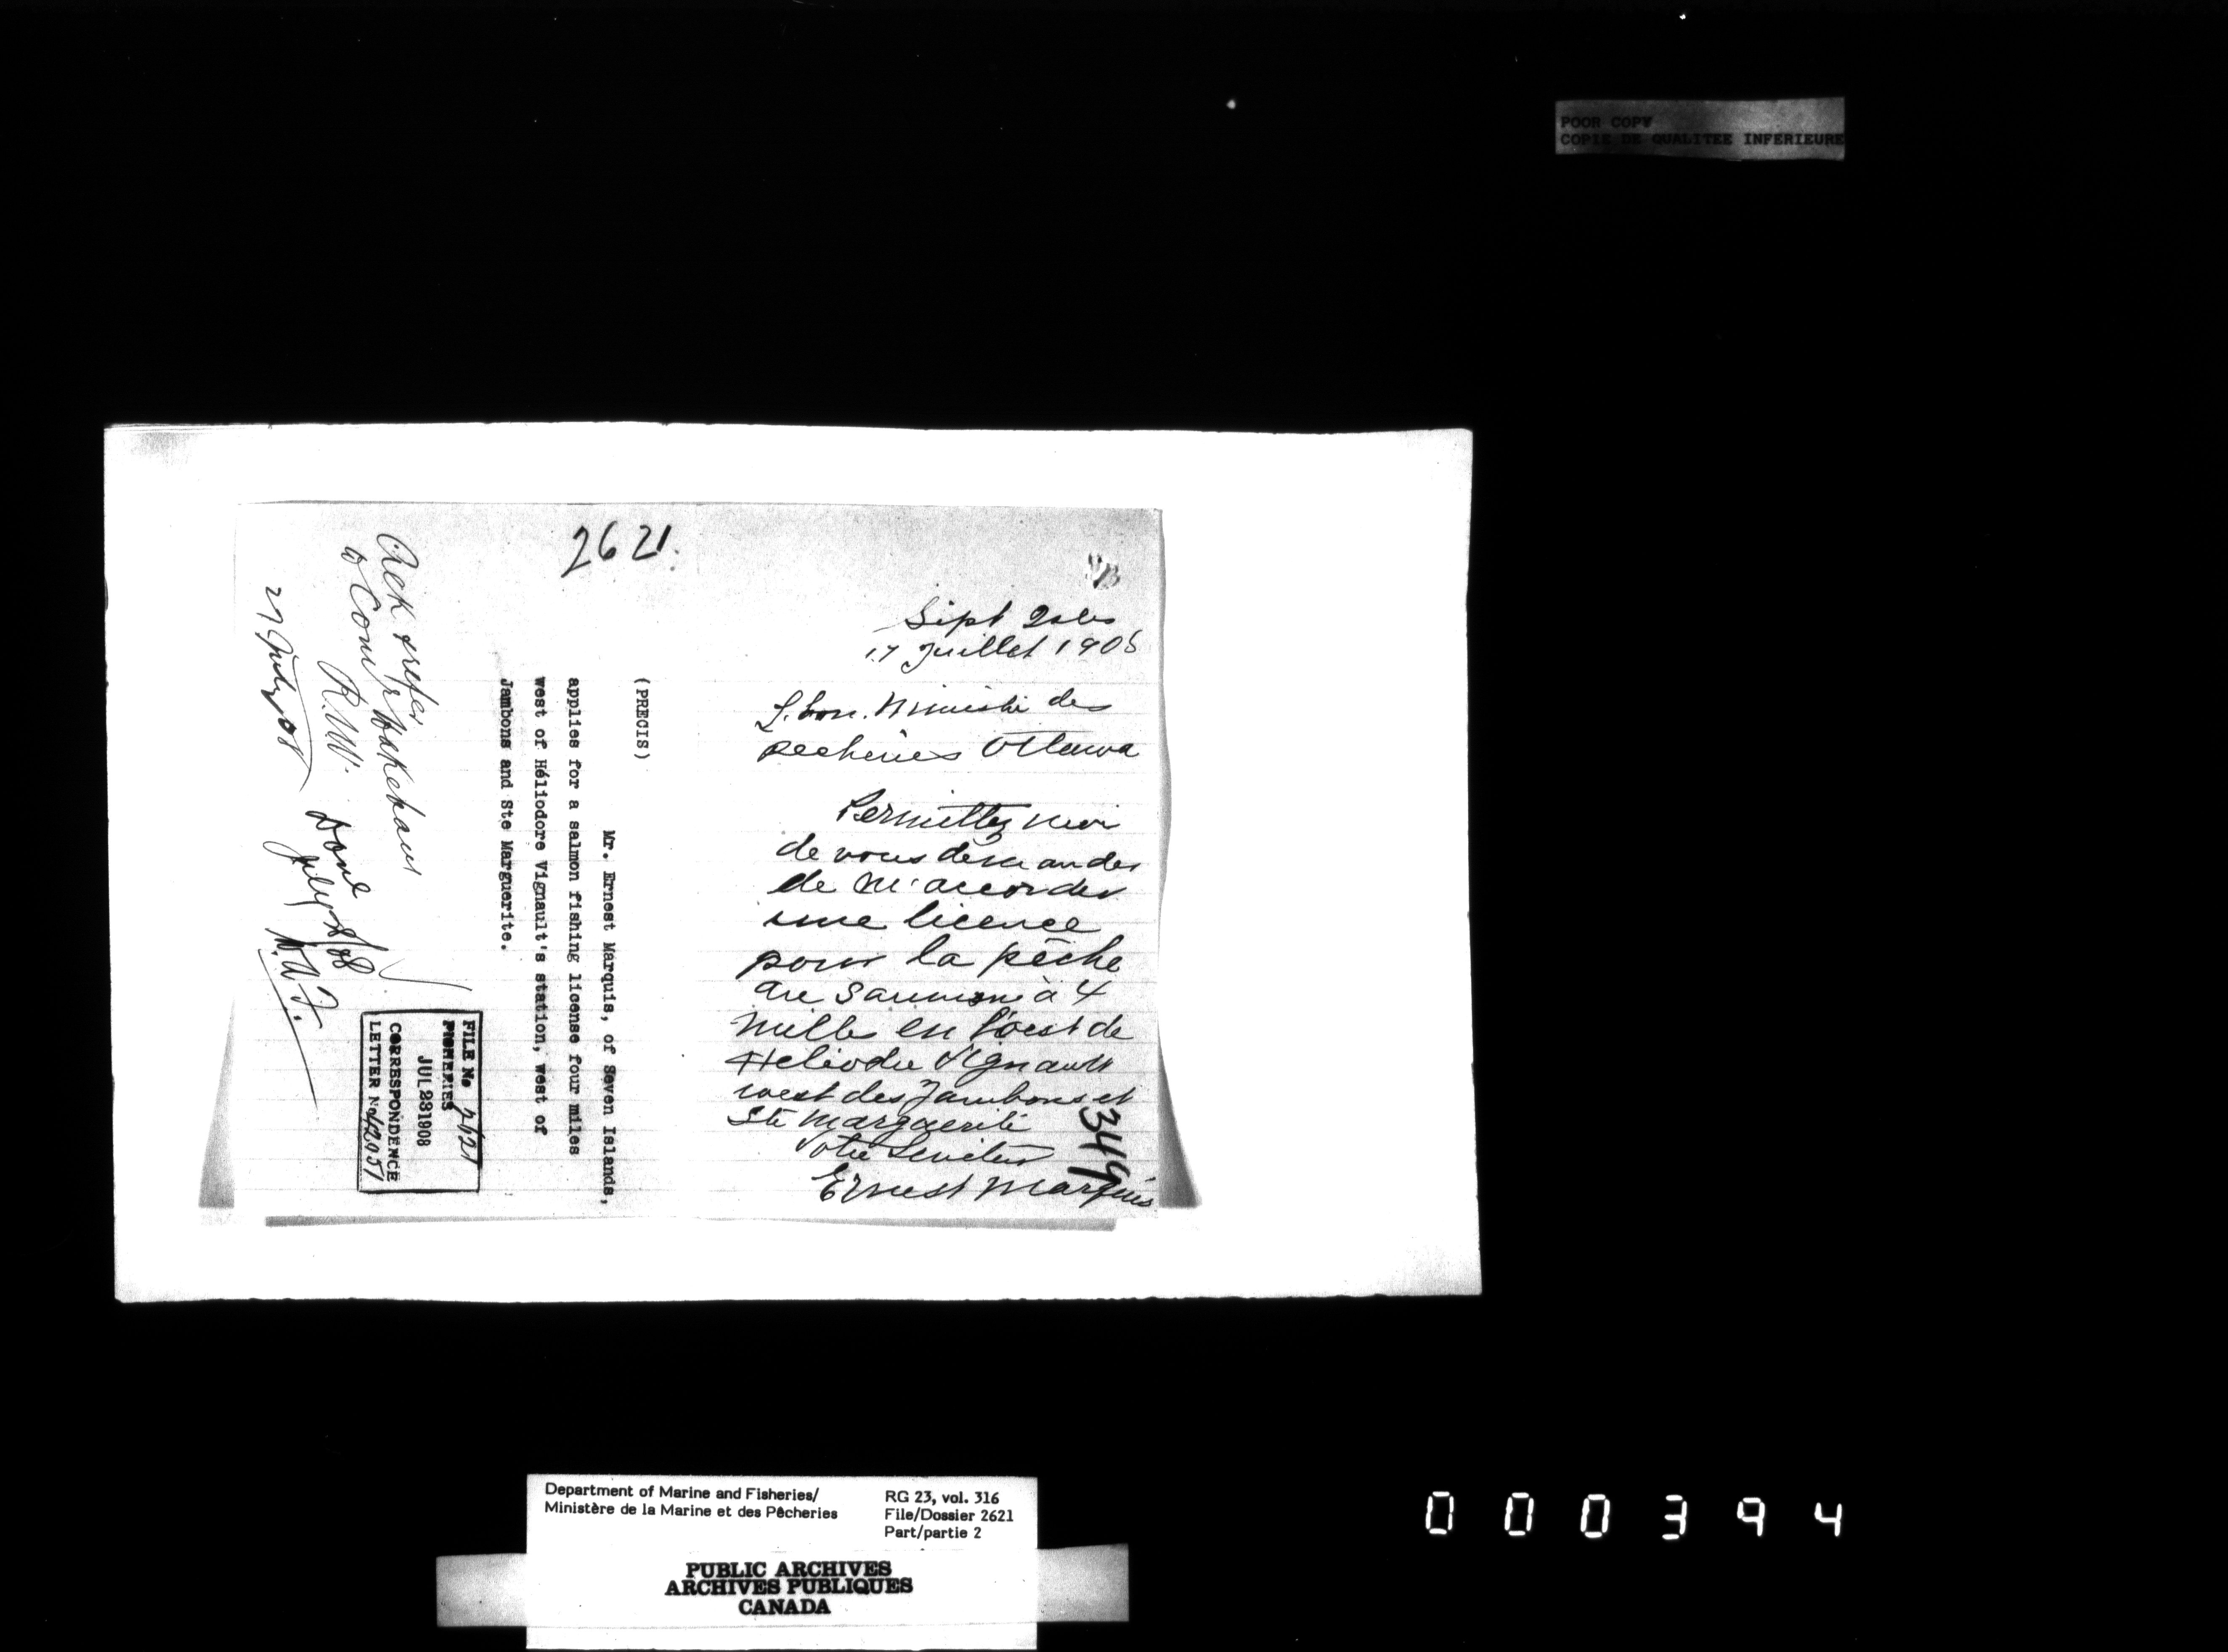 POOR COPY
COPIE DE QUALITEE INFERIEURE
2621.
Sept Isles
17 Juillet 1908
L. hon. Ministre des
pecheries Ottawa
Permettez moi
de vous demander
de m'accorder
une licence
pour la pêche
au Saumon à 4
mille en l'oest de
Heliodre Vignault
west des Jambons et
Ste Marguerite
Votre Serviteur
Ernest Marquis
349
(PRECIS)
Mr. Ernest Marquis, of Seven Islands,
applies for a salmon fishing license four miles
west of Héliodore Vignault's station, west of
Jambons and Ste Marguerite.
Ack & refer
to Comr Wakeham
R.W.
27 July 08
Done
July 08
FILE No 2621
FISHERIES
JUL 23 1908
CORRESPONDENCE
LETTER No 42051
Department of Marine and Fisheries/
Ministère de la Marine et des Pêcheries
RG 23, vol. 316
File/Dossier 2621
Part/partie 2
PUBLIC ARCHIVES
ARCHIVES PUBLIQUES
CANADA
000394